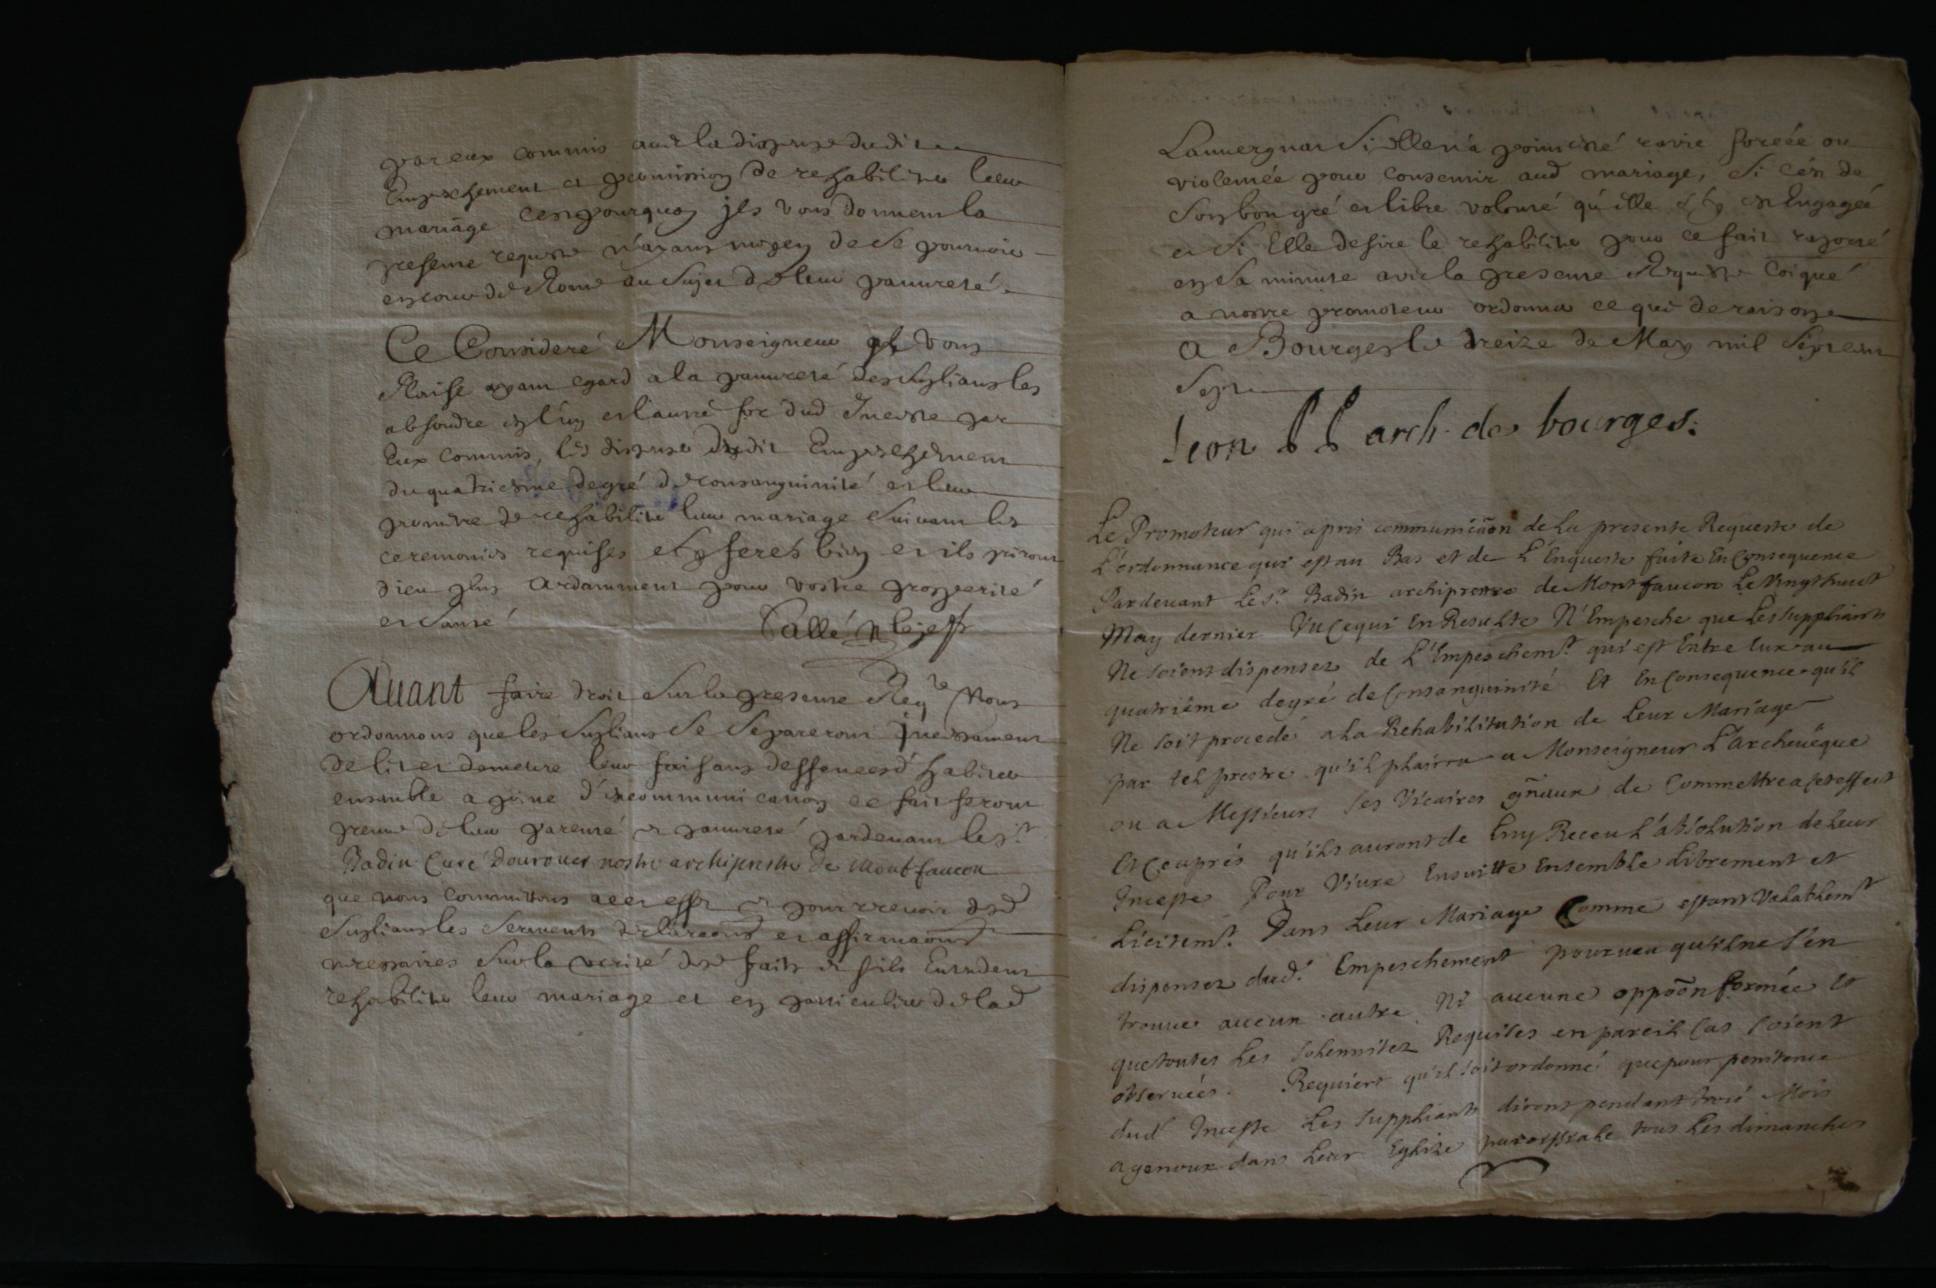 par eux commis avec la dispense dudit
Empeschement et permission de rehabiliter leur
mariage cest pourquoy jls vous donnent la
presente requeste n'ayant moyen de se pourvoir
en cour de Rome au sujet de leur pauvreté
Ce Consideré Monseigneur vous
Plaise ayant egard a la pauvreté des supliants les
absoudre en l'un et l'autre for dud Inceste par
Eux commis, les dispenser dudit Empeschement
du quatriesme degré de consanguinité et leur
permettre de rehabiliter leur mariage suivant les
ceremonies requises et ferés bien et ils prieront
dieu plus ardamment pour vostre prosperité
et santé
Callé
Auant faire droit sur la presente Reqte Nous
ordonnons que les suplians se separeront Incessament
de lit et demeure leur faisans deffences d'habiter
ensemble a peine d'excommunication ce fait feront
preuve de leur parenté et pauvreté pardevant le sr
Badin Curé dourouer nostre archiprestre de Montfaucon
que nous commettons a cet effet et pour recevoir desd
supliants les serments declaraons et affirmaons
necessaires sur la verité desd faits et s'ils Entendent
rehabiliter leur mariage et en particulier de lad
Lauvergnat si elle n'a point esté ravie forcée ou
violentée pour consentir aud mariage, si c'est de
son bon gré et libre volonté qu'elle s'y est Engagée
et si Elle desire le rehabiliter pour ce fait raporté
en sa minute avec la presente Requeste Coiqué
a nostre promoteur ordonner ce que de raison
a Bourges le treize de May mil Sept cent
Sept
leon P P arch. de bourges.
Le Promoteur qui a pris communicaon de la presente Requeste de
L'ordonnance qui est au Bas et de L'Enqueste faite En Consequence
Pardevant Le Sr. Badin archiprestre de Montfaucon Le Vingt huit
May dernier. Vu Ce qui En Resulte N'Empesche que Les suppliants
Ne soient dispensez de L'Empeschemt. qui est Entre Eux au
quatriême degré de Consanguinité Et En Consequence qu'il
Ne soit procedé a La Rehabilitation de Leur Mariage
par tel prestre qu'il plaira a Monseigneur L'archeuêque
ou a Messieurs ses Vicaires gñaux de Commettre a Cet effect
Et Ce aprés qu'ils auront de Luy Receu L'absolution de Leur
Inceste Pour Viure Ensuitte Ensemble Librement et
Licitemt. Dans Leur Mariage Comme estant Valablemt
dispensez dud. Empeschement pourveu qu'il ne s'en
trouve aucun autre Ni aucune oppoõn formée Et
que toutes Les Solemnitez Requises en pareil Cas soient
observées. Requiert qu'il soit ordonné que pour penitence
dud Inceste Les suppliants diront pendant trois Mois
a genoux dans Leur Eglise paroissiale tous Les dimanches